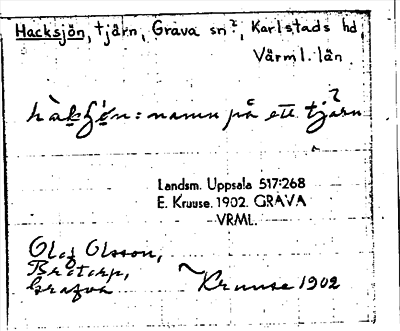 Hacksjön, tjärn, Grava sn?, Karlstads hd,
Värml. län
: namn på ett tjärn
?
Landsm. Uppsala 517:268
E. Kruuse. 1902. GRAVA
VRML.
Olof Olsson,
Grafva
Kruuse 1902